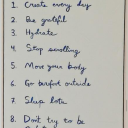 1. Create every day
2. Be grateful
3. Hydrate
4. Stop scrolling
5. Move your body
6. Go barefoot outside
7. Sleep lots
8. Don't try to be